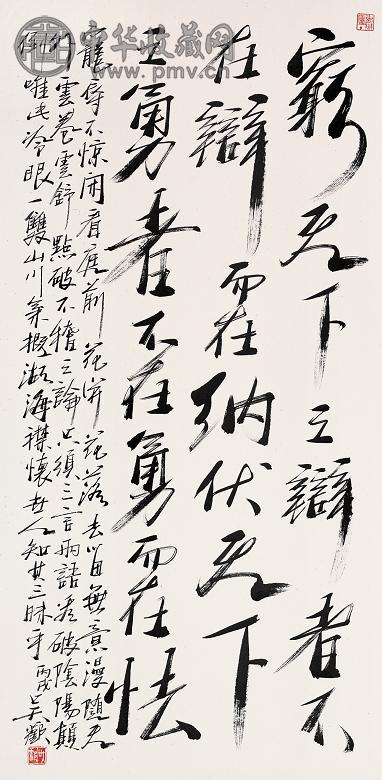 中华收藏网
www.pmv.cn
窮天下之辯者不
在辯而在訥伏天下
之勇者不在勇而在怯
寵辱不惊閑看庭前花開花落去留無意漫隨天
外雲卷雲舒點破不稽之論只須三言兩語看破陰陽顛
倒唯此冷眼一雙山川氣概湖海襟懷世人知其三昧乎丙戌吴歡